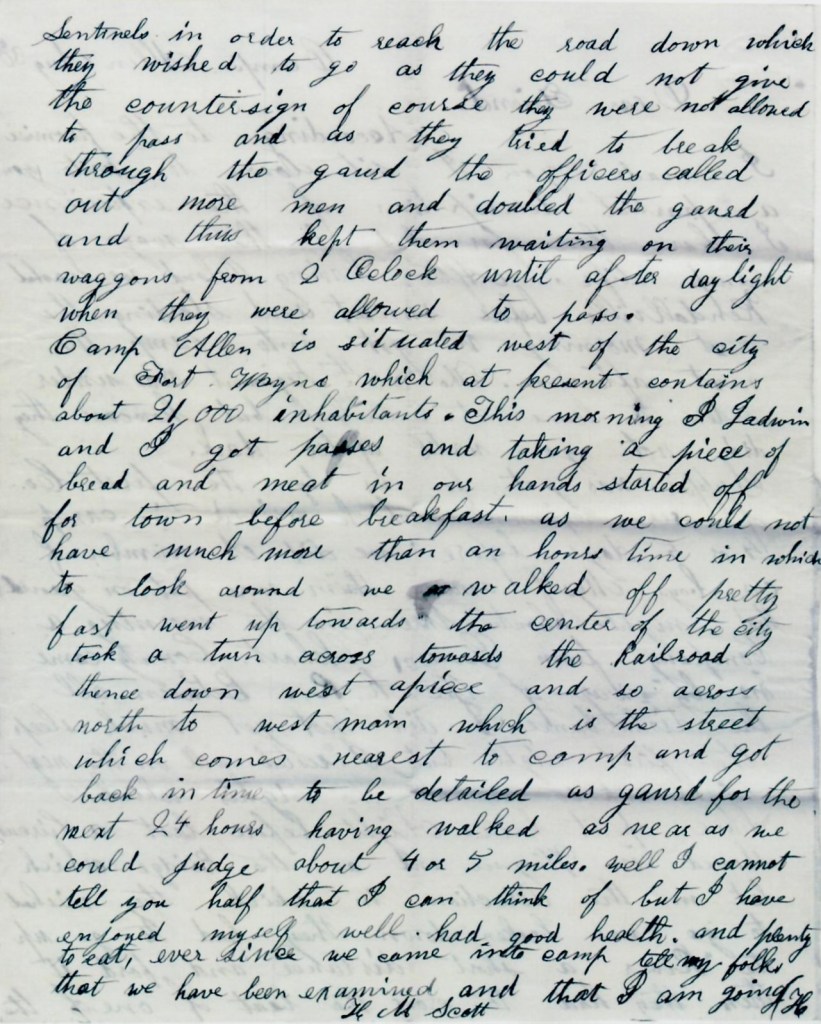 Sentinels in order to reach the road down which
they wished to go as they could not give
the countersign of course they were not allowed
to pass and as they tried to break
through the gaurd the officers called
out more men and doubled the gaurd
and thus kept them waiting on their
waggons from 2 Oclock until after daylight
when they were allowed to pass.
Camp Allen is situated west of the city
of Fort Wayne which at present contains
about 21,000 inhabitants. This morning J Ladwin
and I got passes and taking a piece of
bread and meat in our hands started off
for town before breakfast. as we could not
have much more than an hours time in which
to look around we walked off pretty
fast went up towards the center of the city
took a turn across towards the Railroad
thence down west apiece and so across
north to west main which is the street
which comes nearest to camp and got
back in time to be detailed as gaurd for the
next 24 hours having walked as near as we
could Judge about 4 or 5 miles. well I cannot
tell you half that I can think of but I have
enjoyed myself well. had good health. and plenty
to eat, ever since we came into camp tell my folks
that we have been examined and that I am going
H M Scott